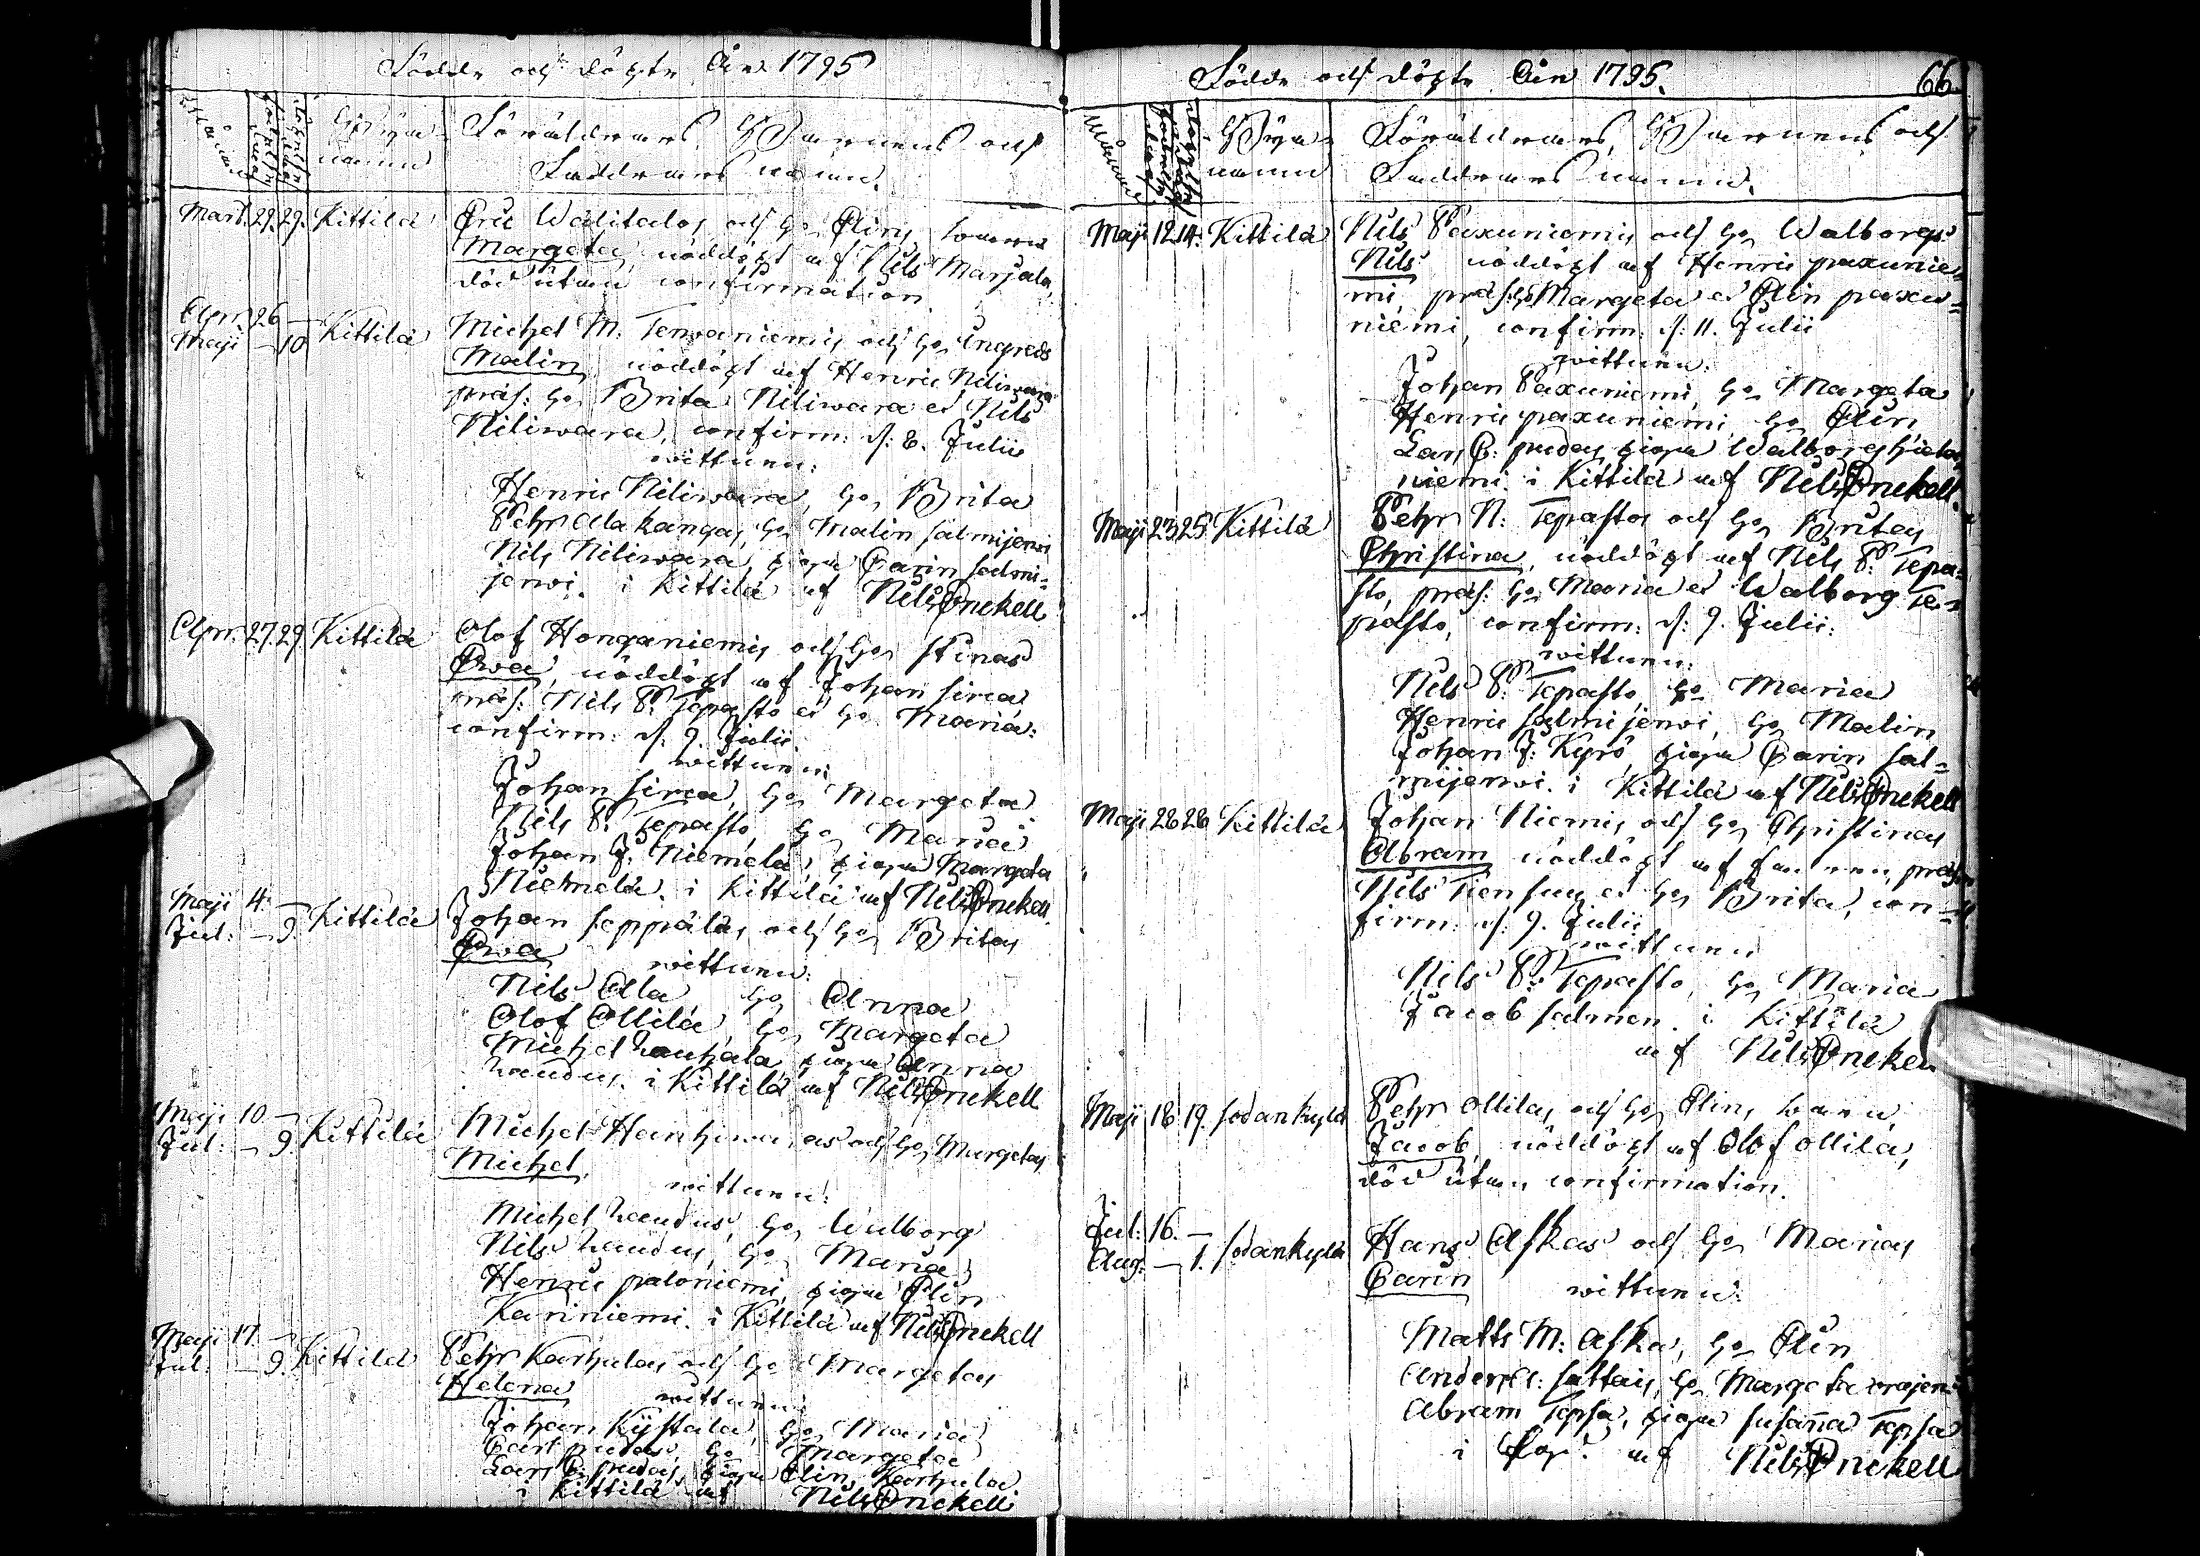 Födde och döpte Åhr 1795
Månad
födelse dag
döpelse dag
Bya
namn
Föräldrars, Barnens och
Faddrars namn.
Mart. 29. 29. Kittilä Eric Walitalos och h: Elins barn
Margeta, nöddöpt af Nils Marjala,
död utan confirmation
Apr. 26 —
Maji — 10 Kittilä Michel M: Tervaniemis och h: Ingreds
Malin, nöddöpt af Henric Niliwara
præs: h: Brita Niliwara et Nils
Niliwara, confirm: d: 8. Julii
wittnen:
Henric Niliwara, h: Brita
Pehr Alakangas, h: Malin salmijerwi
Nils Niliwara, pigan Carin salmi=
jerwi. i Kittilä af Nils Snekell
Apr. 27. 29. Kittilä Olof Honganiemis och h: stinas
Ewa, nöddöpt af Johan sirca
præs: Nils P: Tepasto et h: Maria:
confirm: d: 9. Julii
wittnen:
Johan sirca, h: Margeta
Nils P: Tepasto, h: Maria
Johan J: Niemelä, pigan Margeta
Niemelä. i Kittilä af Nils Snekell
Maji 4. —
Jul: — 9. Kittilä Johan seppäläs och h: Britas
Ewa
wittnen:
Nils Alla h: Anna
Olof Ollila, h: Margeta
Michel Lauhala, pigan Anna
Landus. i Kittilä af Nils Snekell
Maji 10 —
Jul: — 9. Kittilä Michel och h: Margetas
Michel.
wittnen:
Michel Landus, h: Walborg
Nils Landus, h: Maria
Henric paloniemi, pigan Elin
Kariniemi. i Kittilä af Nils Snekell
Maji 17. —
Jul: — 9. Kittilä Pehr Karhulas och h: Margetas
Helena
wittnen:
Johan Kystala, h: Maria
Carl pudas h: Margeta
Lars C: pudas, pigan Elin Karhula
i Kittilä af Nils Snekell
Födde och döpte Åhr 1795.
66.
Månad
födelse dag
döpelse dag
Bya
namn
Föräldrars, Barnens och
Faddrars namn.
Maji 12. 14. Kittilä Nils Paxuniemis och h: Walborgs
Nils nöddöpt af Henric paxunie=
mi, præs: h: Margeta et Elin paxu=
niemi, confirm: d: 11. Julii
wittnen:
Johan Paxuniemi, h: Margeta
Henric paxuniemi h: Elin
Lars C: pudas, pigan Walborg hieta
niemi. i Kittilä af Nils Snekell.
Maji 23. 25. Kittilä Pehr N: Tepastos och h: Britas
Christina, nöddöpt af Nils P: Tepa=
sto, præs: h: Maria et Walborg Te=
pasto, confirm: d: 9. Julii:
wittnen:
Nils P: Tepasto, h: Maria
Henric salmijerwi, h: Malin
Johan J: Kyrö, pigan Carin sal=
mijerwi. i Kittilä af Nils Snekell
Maji 28 28 Kittilä Johan Niemis och h: Christinas
Abram nöddöpt af fadren, præs:
Nils Tiensuu et h: Brita, con=
firm: d: 9. Julii
wittnen
Nils P: Tepasto, h: Maria
Jacob salmen. i Kittilä
af Nils Snekell
Maji 18 19. sodankylä Pehr Ollilas och h: Elins barn
Jacob, nöddöpt af Olof Ollila,
död utan confirmation.
Jul: 16. —
Aug: — 1. sodankylä Hans Askas och h: Marias
Carin
wittnen:
Matts M: Aska, h: Elin
Anders A: sattais, h: Margeta
Abram Tepsa, pigan susanna Tepsa
i af Nils Snekell